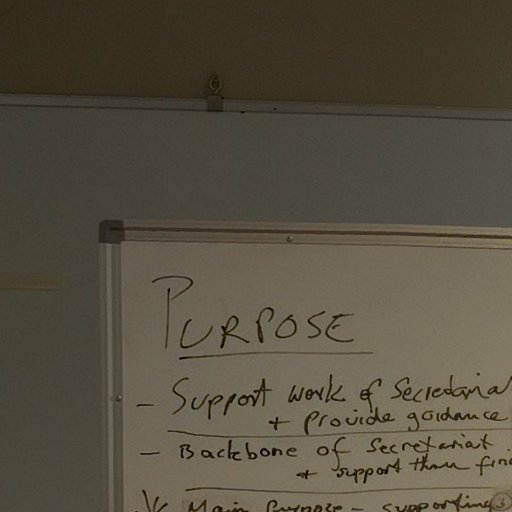 PURPOSE
- Support work of Secretaria
+ provide guidance
- Backbone of Secretariat
+ support them fin
Main Purpose - supporting